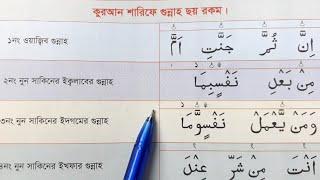 কুরআন শারিফে গুন্নাহ ছয় রকম।
১নং ওয়াজিব গুন্নাহ اِنَّ ثُمَّ جَنّٰتٍ اَمَّ
২নং নুন সাকিনের ইক্বলাবের গুন্নাহ مِنْۢ بَعْدِ نَفْسٍۢبِمَا
৩নং নুন সাকিনের ইদগামের গুন্নাহ وَمَنْ يَّعْمَلْ نَفْسٍوَّمَا
৪নং নুন সাকিনের ইখফার গুন্নাহ اَنْتَ مِنْ شَرِّ عِنْدَ